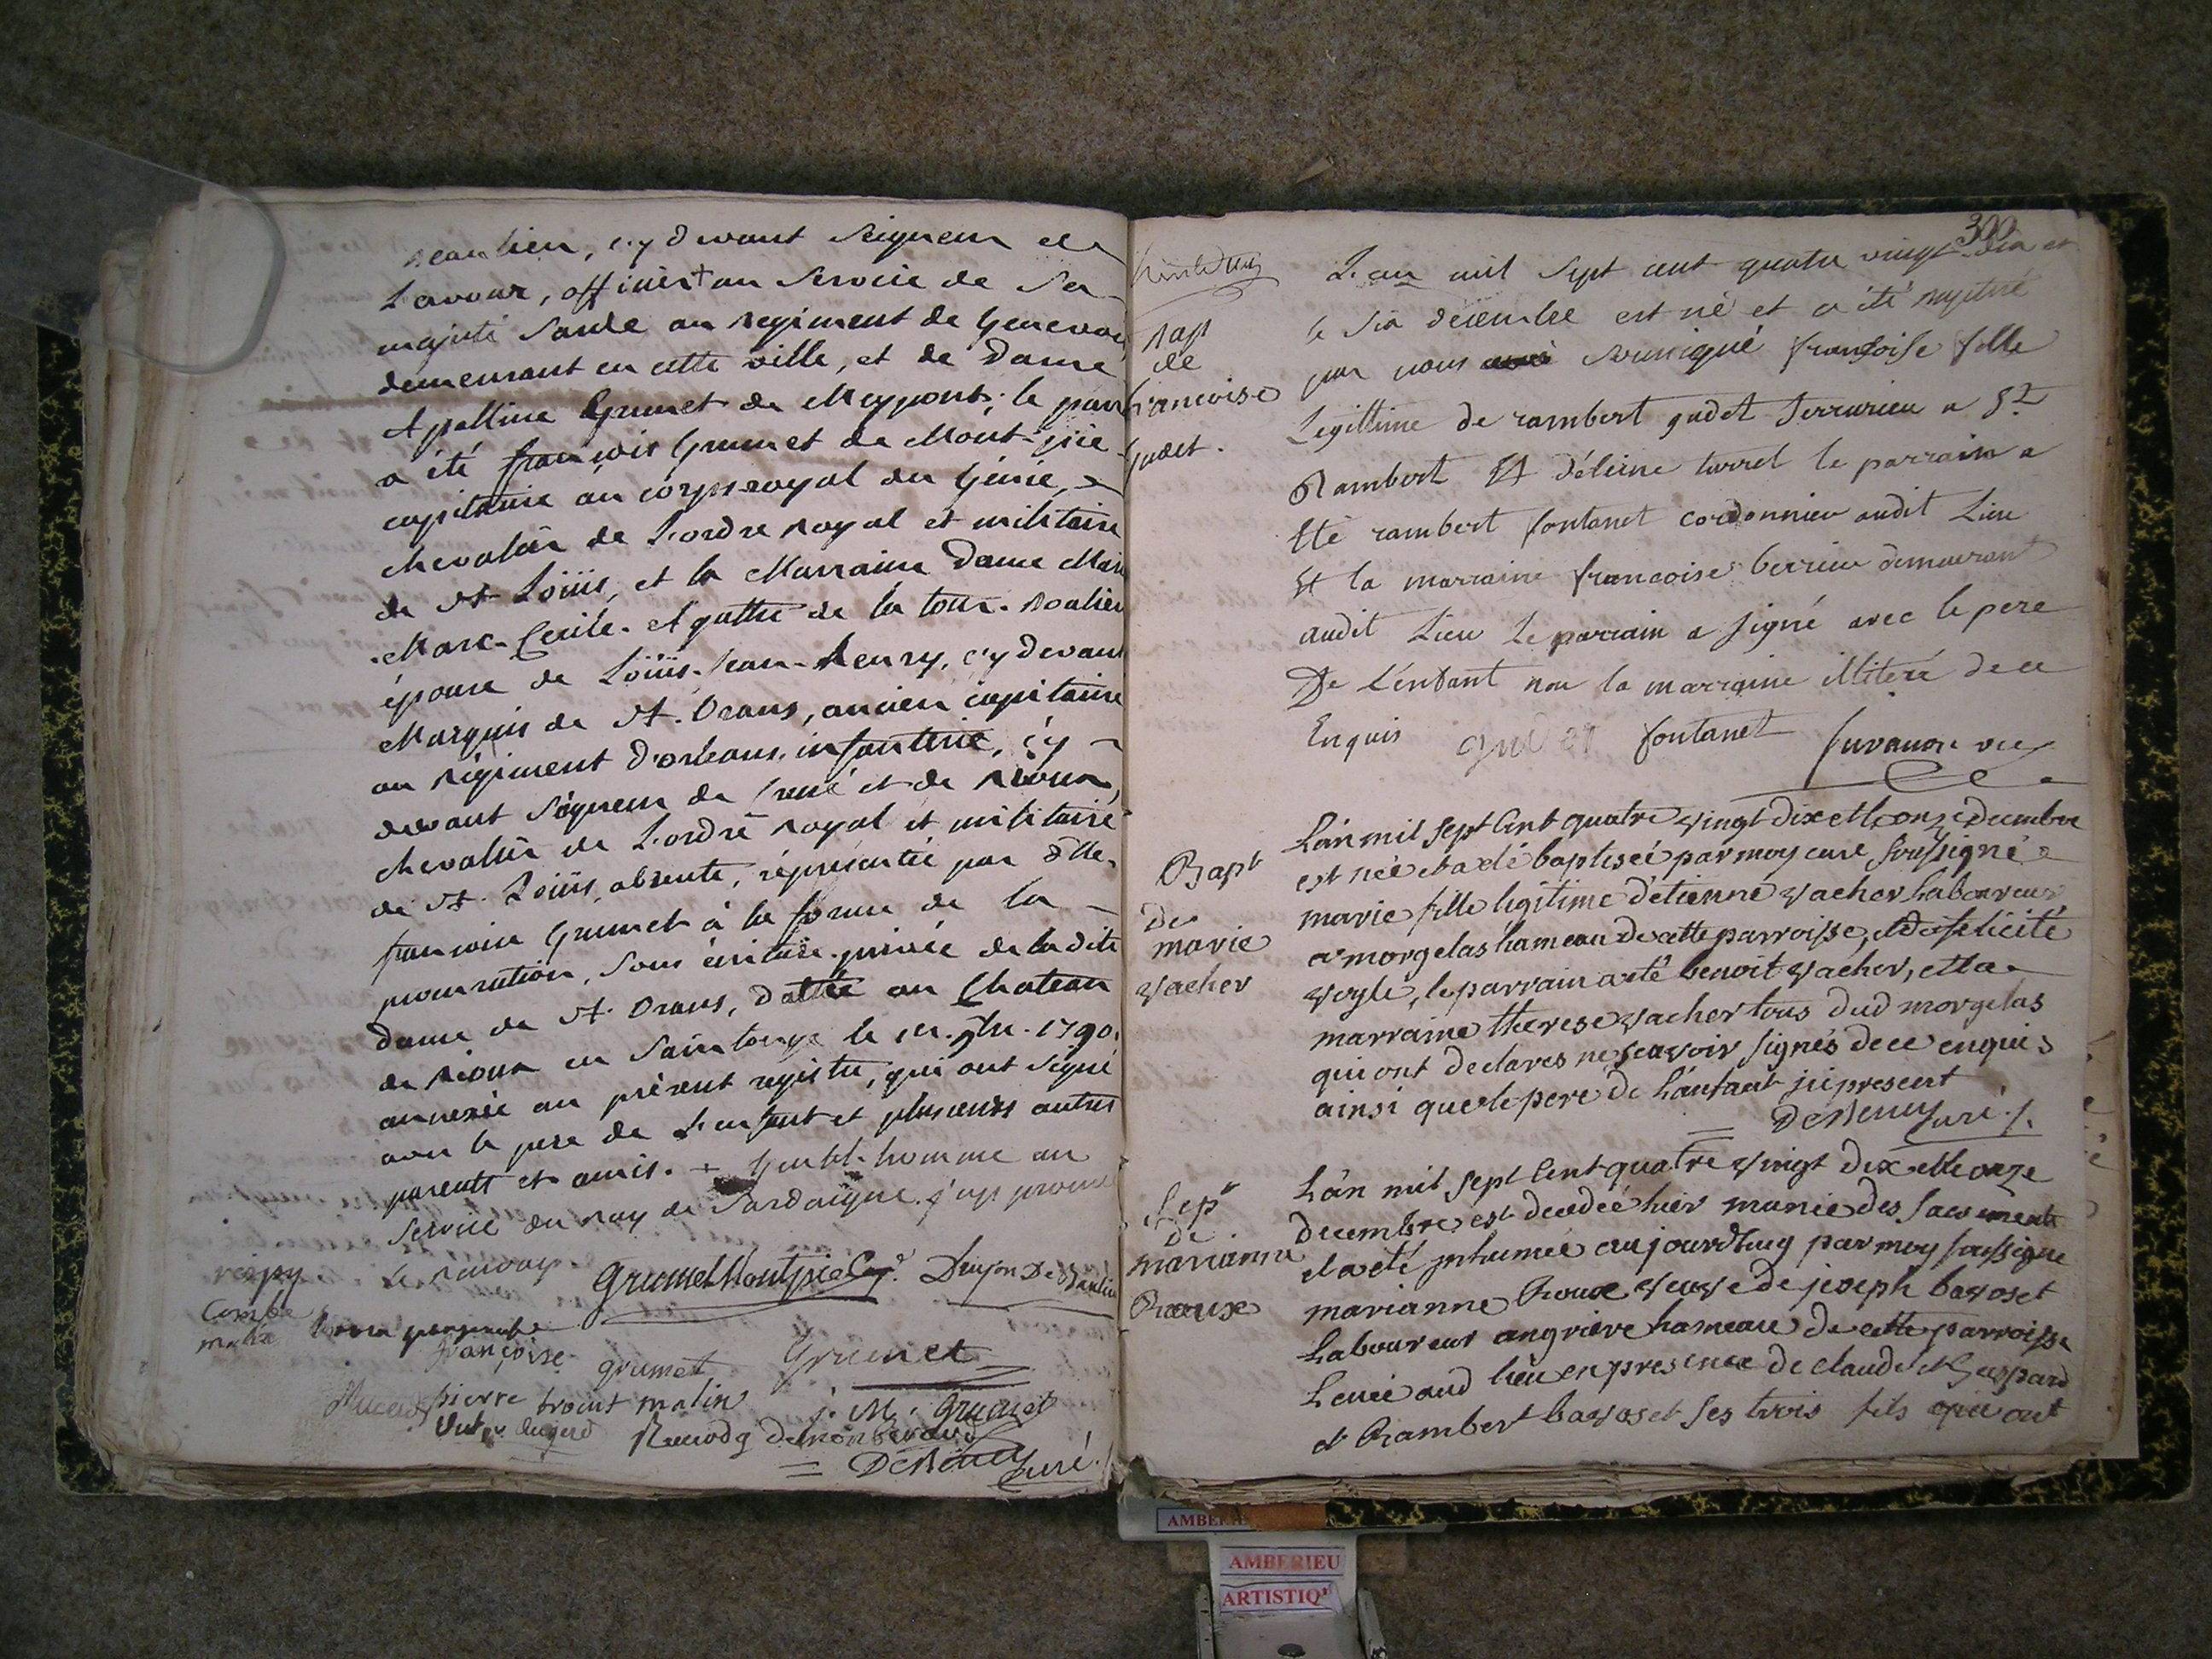 Beaulieu, cy devant Seigneur de
Lavour, officier + au Service de Sa
majesté Sarde au Regiment de Genevois
demeurant en cette ville, et de Dame
Apolline Grumet de Meypont; le parr
a été françois Grumet de Mont-pié
capitaine au corps royal du Génie,
chevalier de L'ordre Royal et militaire
de St Loüis, et la Marraine Dame Marie
Marc-Cecile-Agathe de la tour-
épouse de Loüis-Jean-Henry, cy devant
Marquis de St. Orans, ancien capitaine
au Régiment d'orleans, infanterie, cy
devant Seigneur de et de Rioux,
chevalier de L'ordre royal et militaire
de St. Loüis, absente, réprésentée par dlle.
françoise Grumet à la forme de la
procuration, Sous écriture privée de ladite
dame de St. Orans, dattée au Chateau
de Rioux en Saintonge le 9bre. 1790.
annexée au présent registre, qui ont signé
avec le pere de L'enfant et plusieurs autres
parents et amis. + Gentil-homme au
Service du roy de Sardaigne. j'approuve
le renvoy
Grumet Montpié Capne. Dujon De Beaulieu
Combe
françoise grumet Grumet
pierre malin j. M. Grumet
Curé
300
Bapt
de
francoise
gudet.
L'an mil Sept cent quatre vingt dix et
le Six decembre est né et a été baptisé
par nous Soussigné françoise fille
Legittime de rambert gudet Serrurier a St
Rambert Et d'étienne turrel le parrain a
Eté rambert fontanet cordonnier audit Lieu
Et la marraine francoise berrier demeurant
audit Lieu Le parrain a signé avec le pere
De L'enfant non la marraine illiteré de ce
Enquis gudet fontanet
Bapt
de
marie
vacher
L'an mil sept Cent quatre vingt dix et le onze decembre
est née et a eté baptiseé par moy curé soussigné
marie fille legitime d'etienne vacher Laboureur
a morgelas hameau de cette parroisse, et de felicité
veyle, le parrain a eté benoit vacher, et la
marraine therese vacher tous dud morgelas
qui ont declarés ne scavoir signés de ce enquis
ainsi que le pere de L'anfant ji present
Curé
Sepr
de
marianne
Rouxe
L'an mil sept Cent quatre vingt dix et le onze
decembre est decedeé hier munie des sacrements
et a eté jnhumeé aujourdhuy par moy soussigné
marianne Rouxe veuve de joseph bavoset
Laboureur angrieve hameau de cette parroisse
Leveé aud lieu en presence de claude et Gaspard
et Rambert bavoset ses trois fils qui ont
AMBERIEU
ARTISTIQ'